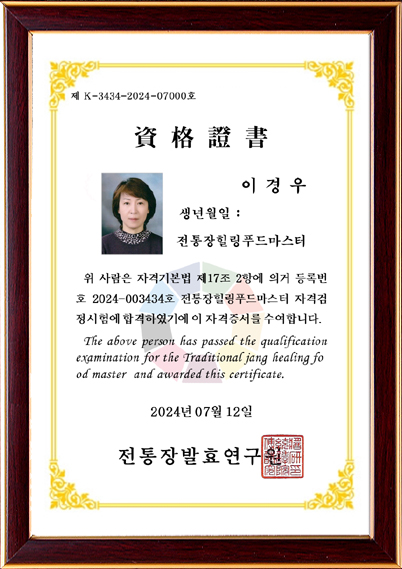 제 K-3434-2024-07000호
資格證書
이경우
생년월일 :
전통장힐링푸드마스터
위 사람은 자격기본법 제17조 2항에 의거 등록번
호 2024-003434호 전통장힐링푸드마스터 자격검
정시험에 합격하였기에 이 자격증서를 수여합니다.
The above person has passed the qualification
examination for the Traditional jang healing fo
od master and awarded this certificate.
2024년 07월 12일
전통장발효연구원